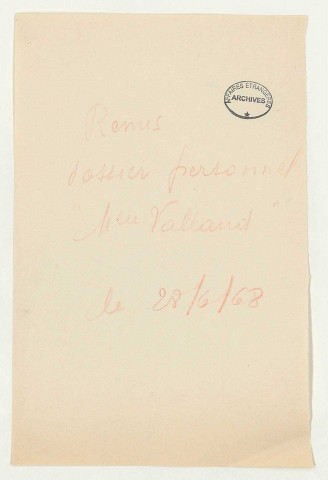 AFFAIRES ETRANGERES
ARCHIVES
Remis
dossier personnel
"Melle Valland"
le 28/6/68